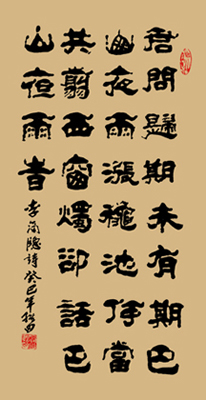 君問歸期未有期巴
山夜雨漲穐池何當
共翦西窗燭卻話巴
山夜雨旹
李商隱詩癸巳年